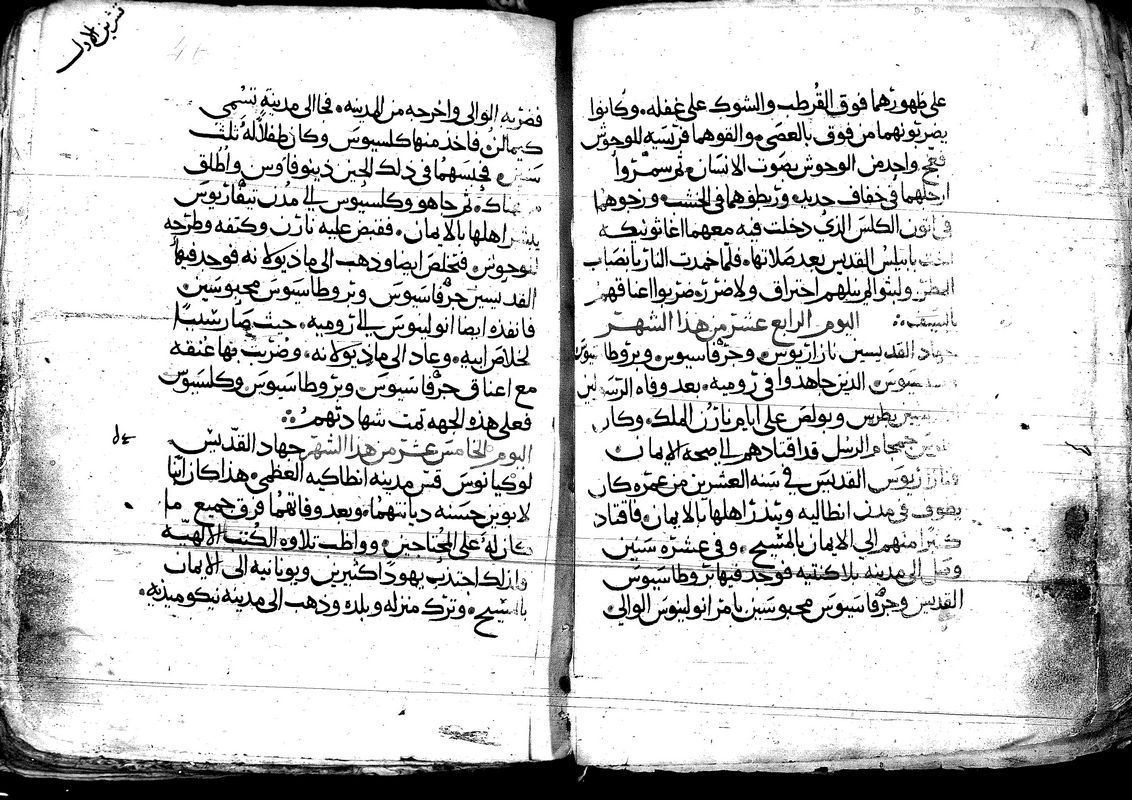 على ظهورهما فوق القرطب والشوك على غفله. وكانوا
يضربونهما من فوق بالعصي. والقوهما فريسه للوحوش
فصح واحد من الوحوش بصوت الانسان. ثم سمروا
ارجلهما في خفاف حديد. وربطوهما في الخشب. ورجوهما
اتون الكلس الذي دخلت فيه معهما اغاثونيكه
القديس بعد صلاتها. فلما خمدت النار بانصاب
المطر. ولبثوا لم ينلهم احتراق ولا ضرر. ضربوا اعناقهم
بالسيف
اليوم الرابع عشر من هذا الشهر
جهاد القديسين نازاريوس. وجرفاسيوس. وبروطاسيوس
الذين جاهدوا في روميه. بعد وفاه الرسولين
بطرس وبولص على ايام نارن الملك. وكان
الرسل قد اقتادهم الى صحة الايمان
القديس في سنه العشرين من عمره كان
يطوف في مدن انطاليه وينذر اهلها بالايمان. فاقتاد
كثيرا منهم الى الايمان بالمسيح. وفي عشره سنين
وصل الى مدينه بلاكنتيه فوجد فيها بروطاسيوس
القديس وجرفاسيوس محبوسين بامر انولينوس الوالي
تشرين الاول
فضربه الوالي واخرجه من المدينه. فجا الى مدينة تسمى
كيمالن فاخذ منها كلسيوس وكان طفلا له ثلث
سنين. فحبسهما في ذلك الحين دينوفاوس واطلق
هناك. ثم جاهو وكلسيوس الى مدن تيفاريوس
يبشر اهلها بالايمان. فقبض عليه نارن وكتفه وطرحه
للوحوش. فتخلص ايضا وذهب الى ماديولانه فوجد فيها
القديسين جرفاسيوس وبروطاسيوس محبوسين
فانفذه ايضا انولينوس الى روميه. حيث صار سببا
لخلاص ابيه. وعاد الى ماديولانه. وضربت بها عنقه
مع اعناق جرفاسيوس وبروطاسيوس وكلسيوس
فعلى هذه الجهه تمت شهادتهم
اليوم الخامس عشر من هذا الشهر جهاد القديس
لوكيانوس قس مدينه انطاكيه العظمى. هذا كان ابنا
لابوين حسنه ديانتهما. وبعد وفاتهما فرق جميع ما
كان له على المحتاجين. وواظب تلاوه الكتب الالهيه
واذ ذلك اجتذب يهودا كثيرين ويونانيه الى الايمان
بالمسيح. وترك منزله وبلده وذهب الى مدينه نيكوميذيه.